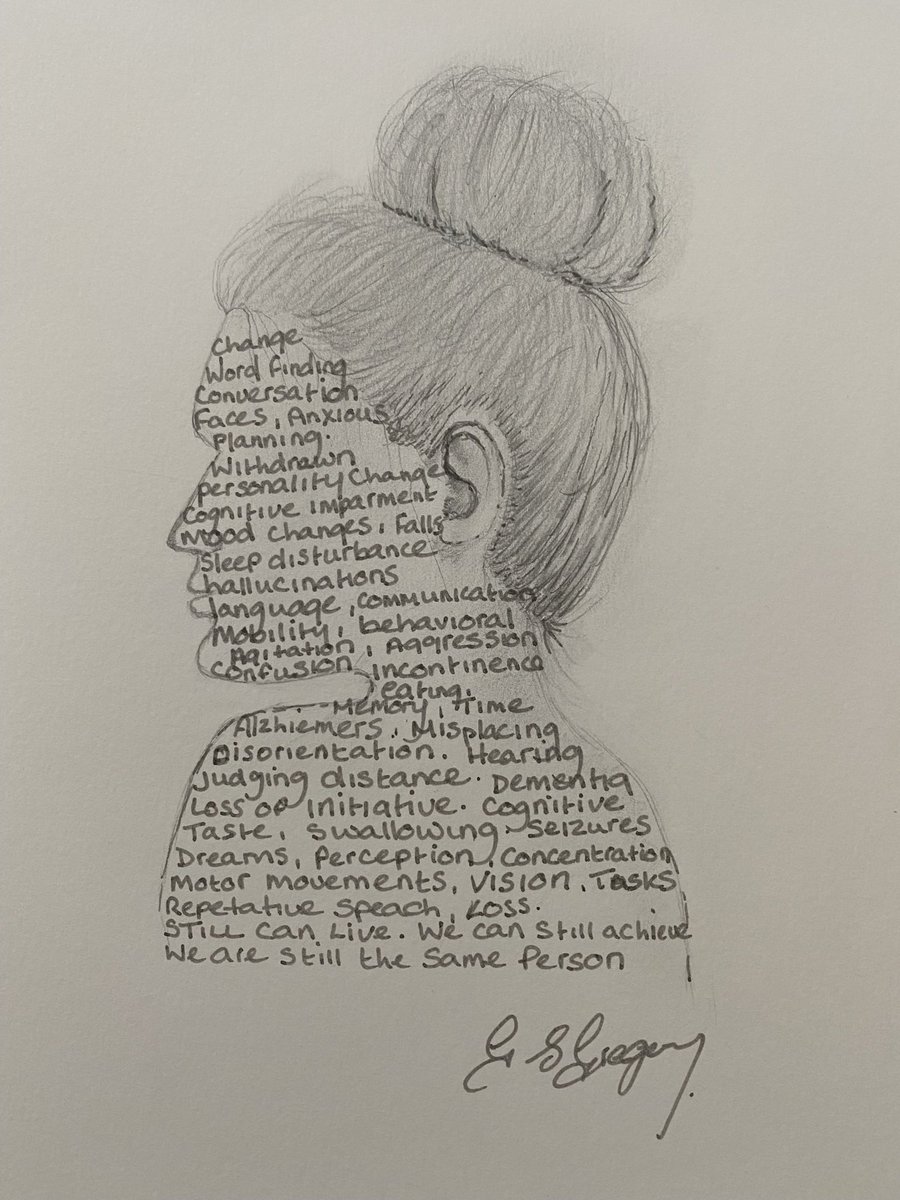 Change
Word finding
Conversation
Faces, Anxious
Planning.
Withdrawn
personality Change
Cognitive imparment
Mood Changes, Falls
Sleep disturbance
hallucinations
language, communication
Mobility, behavioral
Agitation, Aggression
Confusion Incontinence
eating,
Memory, Time
Alzhiemers, Misplacing
Disorientation. Hearing
Judging distance. Dementia
Loss of initiative. Cognitive
Taste, Swallowing. Seizures
Dreams, Perception, Concentration
Motor movements, Vision, Tasks
Repetative Speach, Loss.
STILL Can Live. We can Still achieve
We are Still the Same Person
G S Gregory